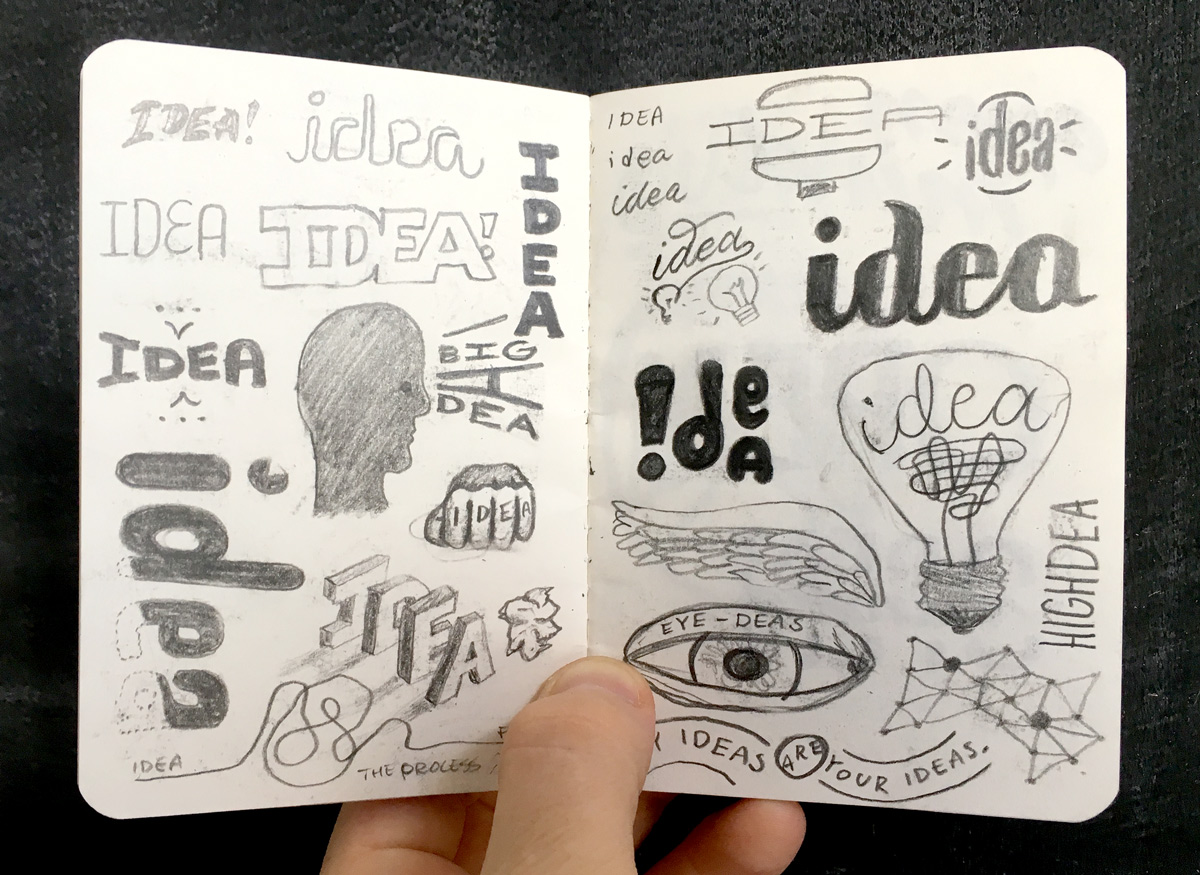 IDEA!
idea
IDEA
IDEA
IDEA!
IDEA
BIG
IDEA
idea
IDEA
IDEA
IDEA
THE PROCESS
IDEA
idea
idea
IDEA
idea
idea
idea
!deA
idea
HIGHDEA
EYE-DEAS
IDEAS ARE YOUR IDEAS.